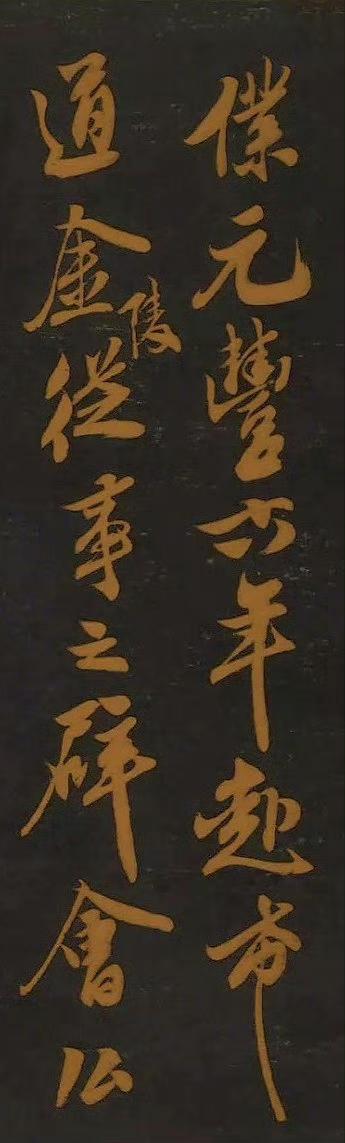 僕元豐六年赴希
道金陵從事之辟會公